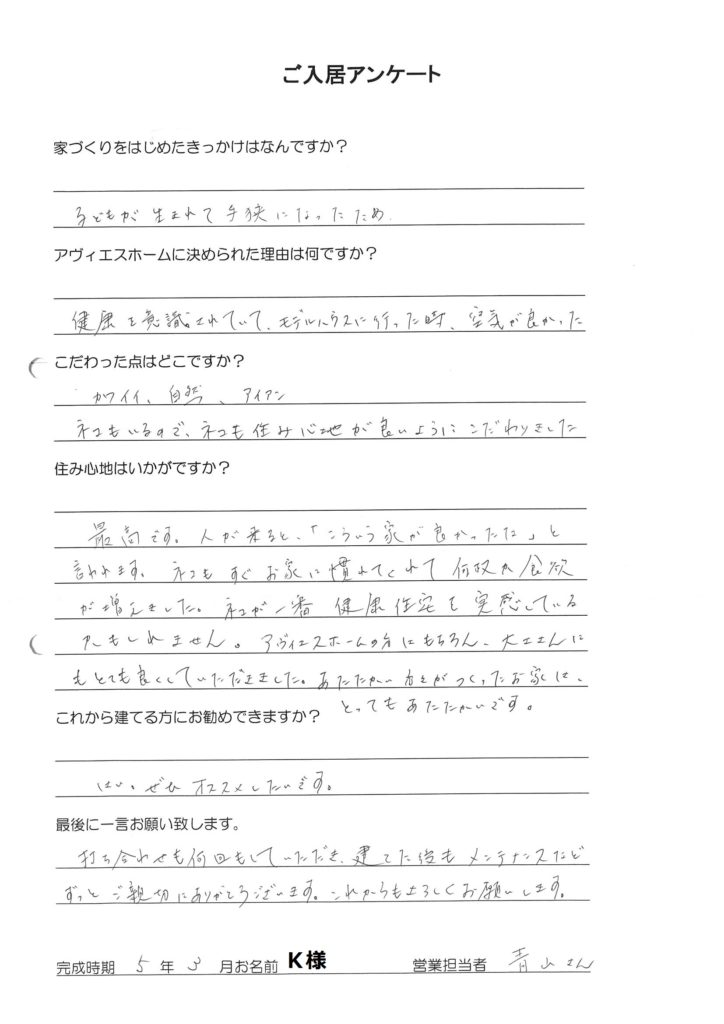 ご入居アンケート
家づくりをはじめたきっかけはなんですか?
子どもが生まれて手狭になったため.
アヴィエスホームに決められた理由は何ですか?
健康を意識されていて、モデルハウスに行った時、空気が良かった
こだわった点はどこですか?
カワイイ、自然、アイアン
ネコもいるので、ネコも住み心地が良いようにこだわりました
住み心地はいかがですか?
最高です。人が来ると、「こういう家が良かったな」と
言われます。ネコもすぐお家に慣れてくれて何故か食欲
が増えました。ネコが一番健康住宅を実感している
かもしれません。アヴィエスホームの方はもちろん、大工さんに
もとても良くしていただきました。あたたかい方々がつくったお家は、
とってもあたたかいです。
これから建てる方にお勧めできますか?
はい。ぜひオススメしたいです。
最後に一言お願い致します。
打ち合わせも何回もしていただき、建てた後もメンテナンスなど
ずっとご親切にありがとうございます。これからもよろしくお願いします。
完成時期 5年3月お名前 K様 営業担当者 青山さん